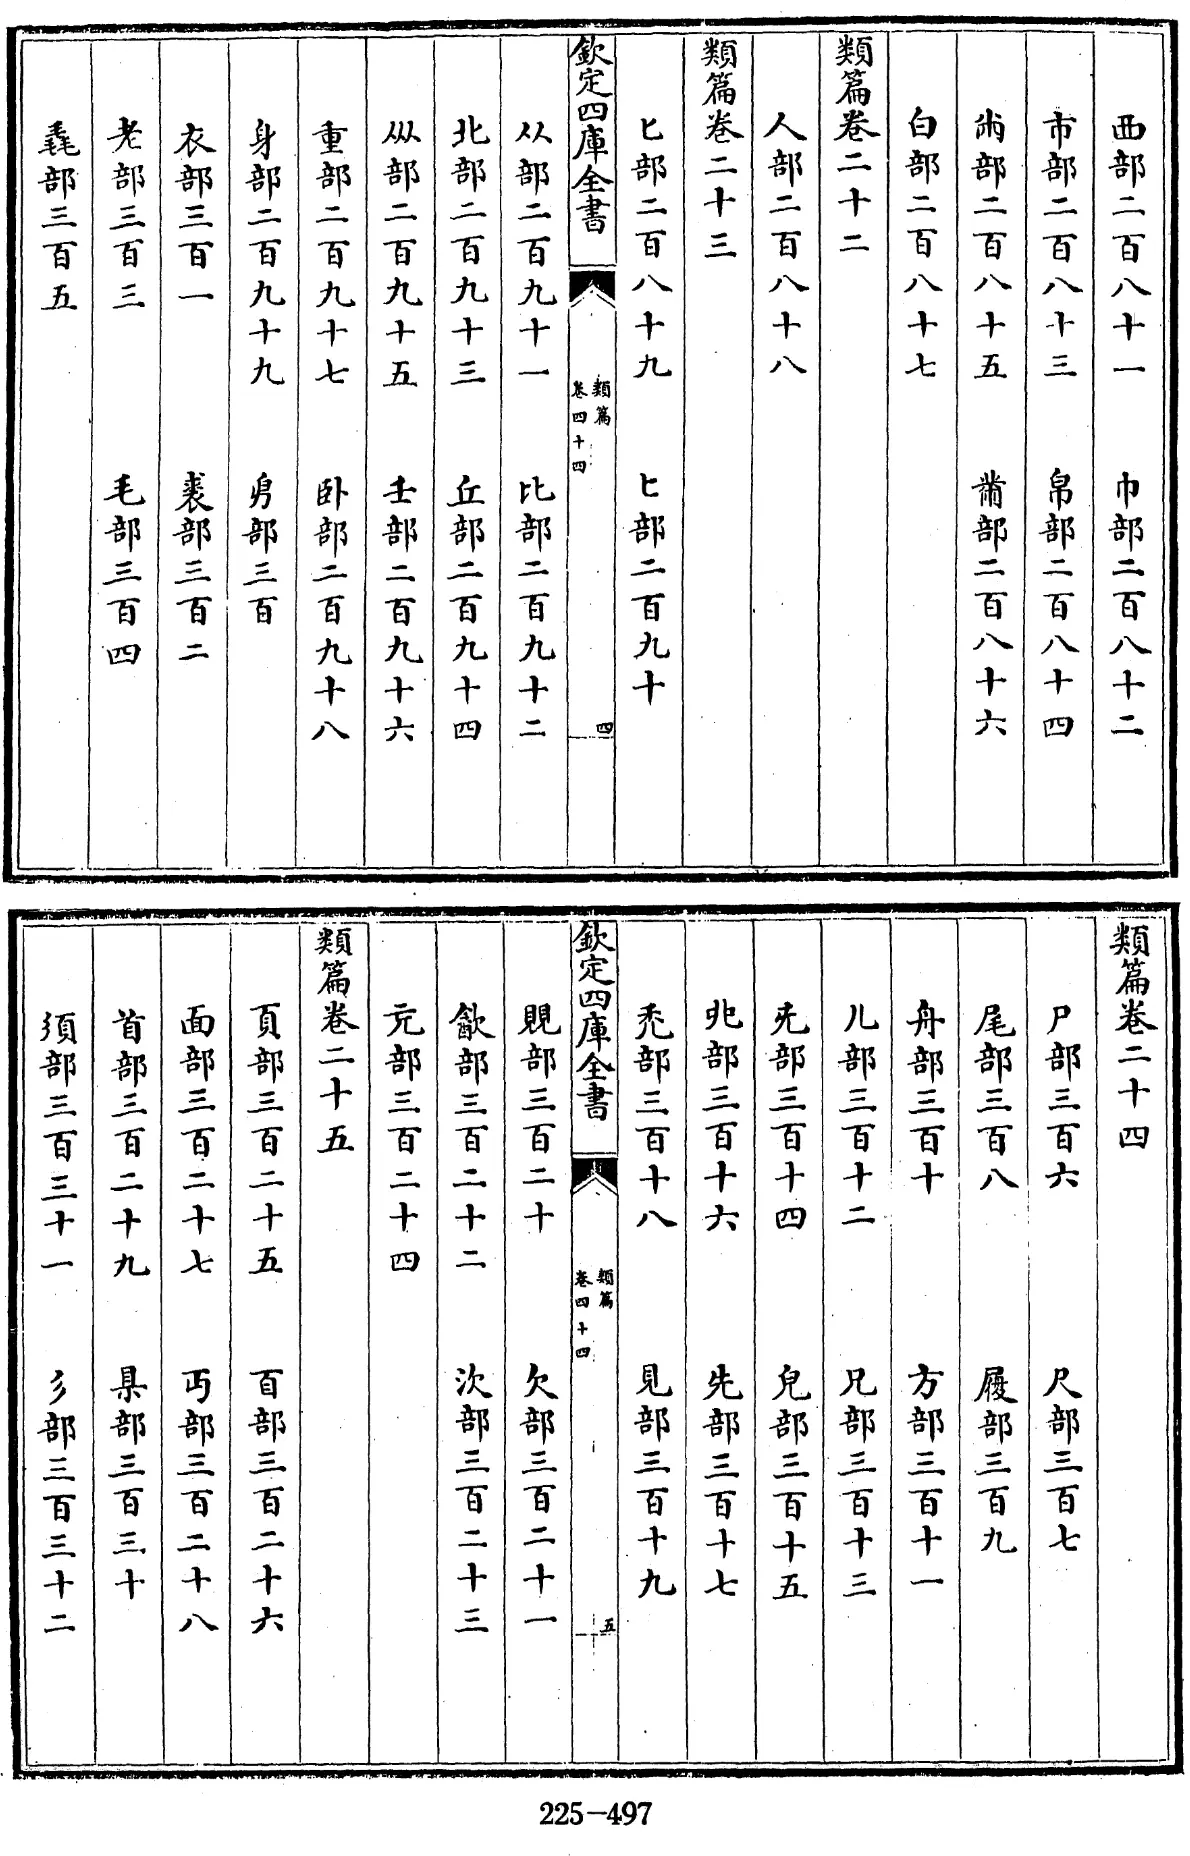 西部二百八十一　巾部二百八十二
市部二百八十三　帛部二百八十四
㡀部二百八十五　黹部二百八十六
白部二百八十七
類篇卷二十二
人部二百八十八
類篇卷二十三
匕部二百八十九　匕部二百九十
欽定四庫全書　類篇卷四十四　四
从部二百九十一　比部二百九十二
北部二百九十三　丘部二百九十四
㐺部二百九十五　𡈼部二百九十六
重部二百九十七　卧部二百九十八
身部二百九十九　㐆部三百
衣部三百一　裘部三百二
老部三百三　毛部三百四
毳部三百五
類篇卷二十四
尸部三百六　尺部三百七
尾部三百八　履部三百九
舟部三百十　方部三百十一
儿部三百十二　兄部三百十三
兂部三百十四　皃部三百十五
𠑹部三百十六　先部三百十七
禿部三百十八　見部三百十九
欽定四庫全書　類篇卷四十四　五
覞部三百二十　欠部三百二十一
㱃部三百二十二　㳄部三百二十三
旡部三百二十四
類篇卷二十五
頁部三百二十五　𦣻部三百二十六
面部三百二十七　丏部三百二十八
首部三百二十九　𥄉部三百三十
須部三百三十一　彡部三百三十二
225-497